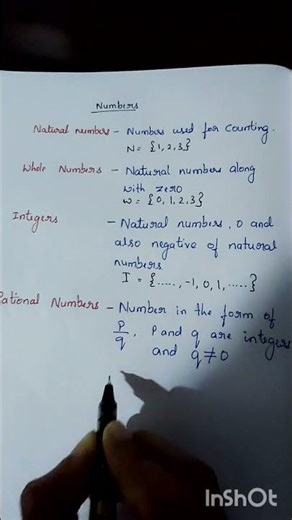 Numbers
Natural numbers - Numbers used for Counting.
N = {1, 2, 3}
Whole Numbers - Natural numbers along
with zero
W = {0, 1, 2, 3}
Integers - Natural numbers, 0 and
also negative of natural
numbers.
I = {....., -1, 0, 1, .....}
Rational Numbers - Number in the form of
p/q. P and q are integers
and q ≠ 0
InShOt